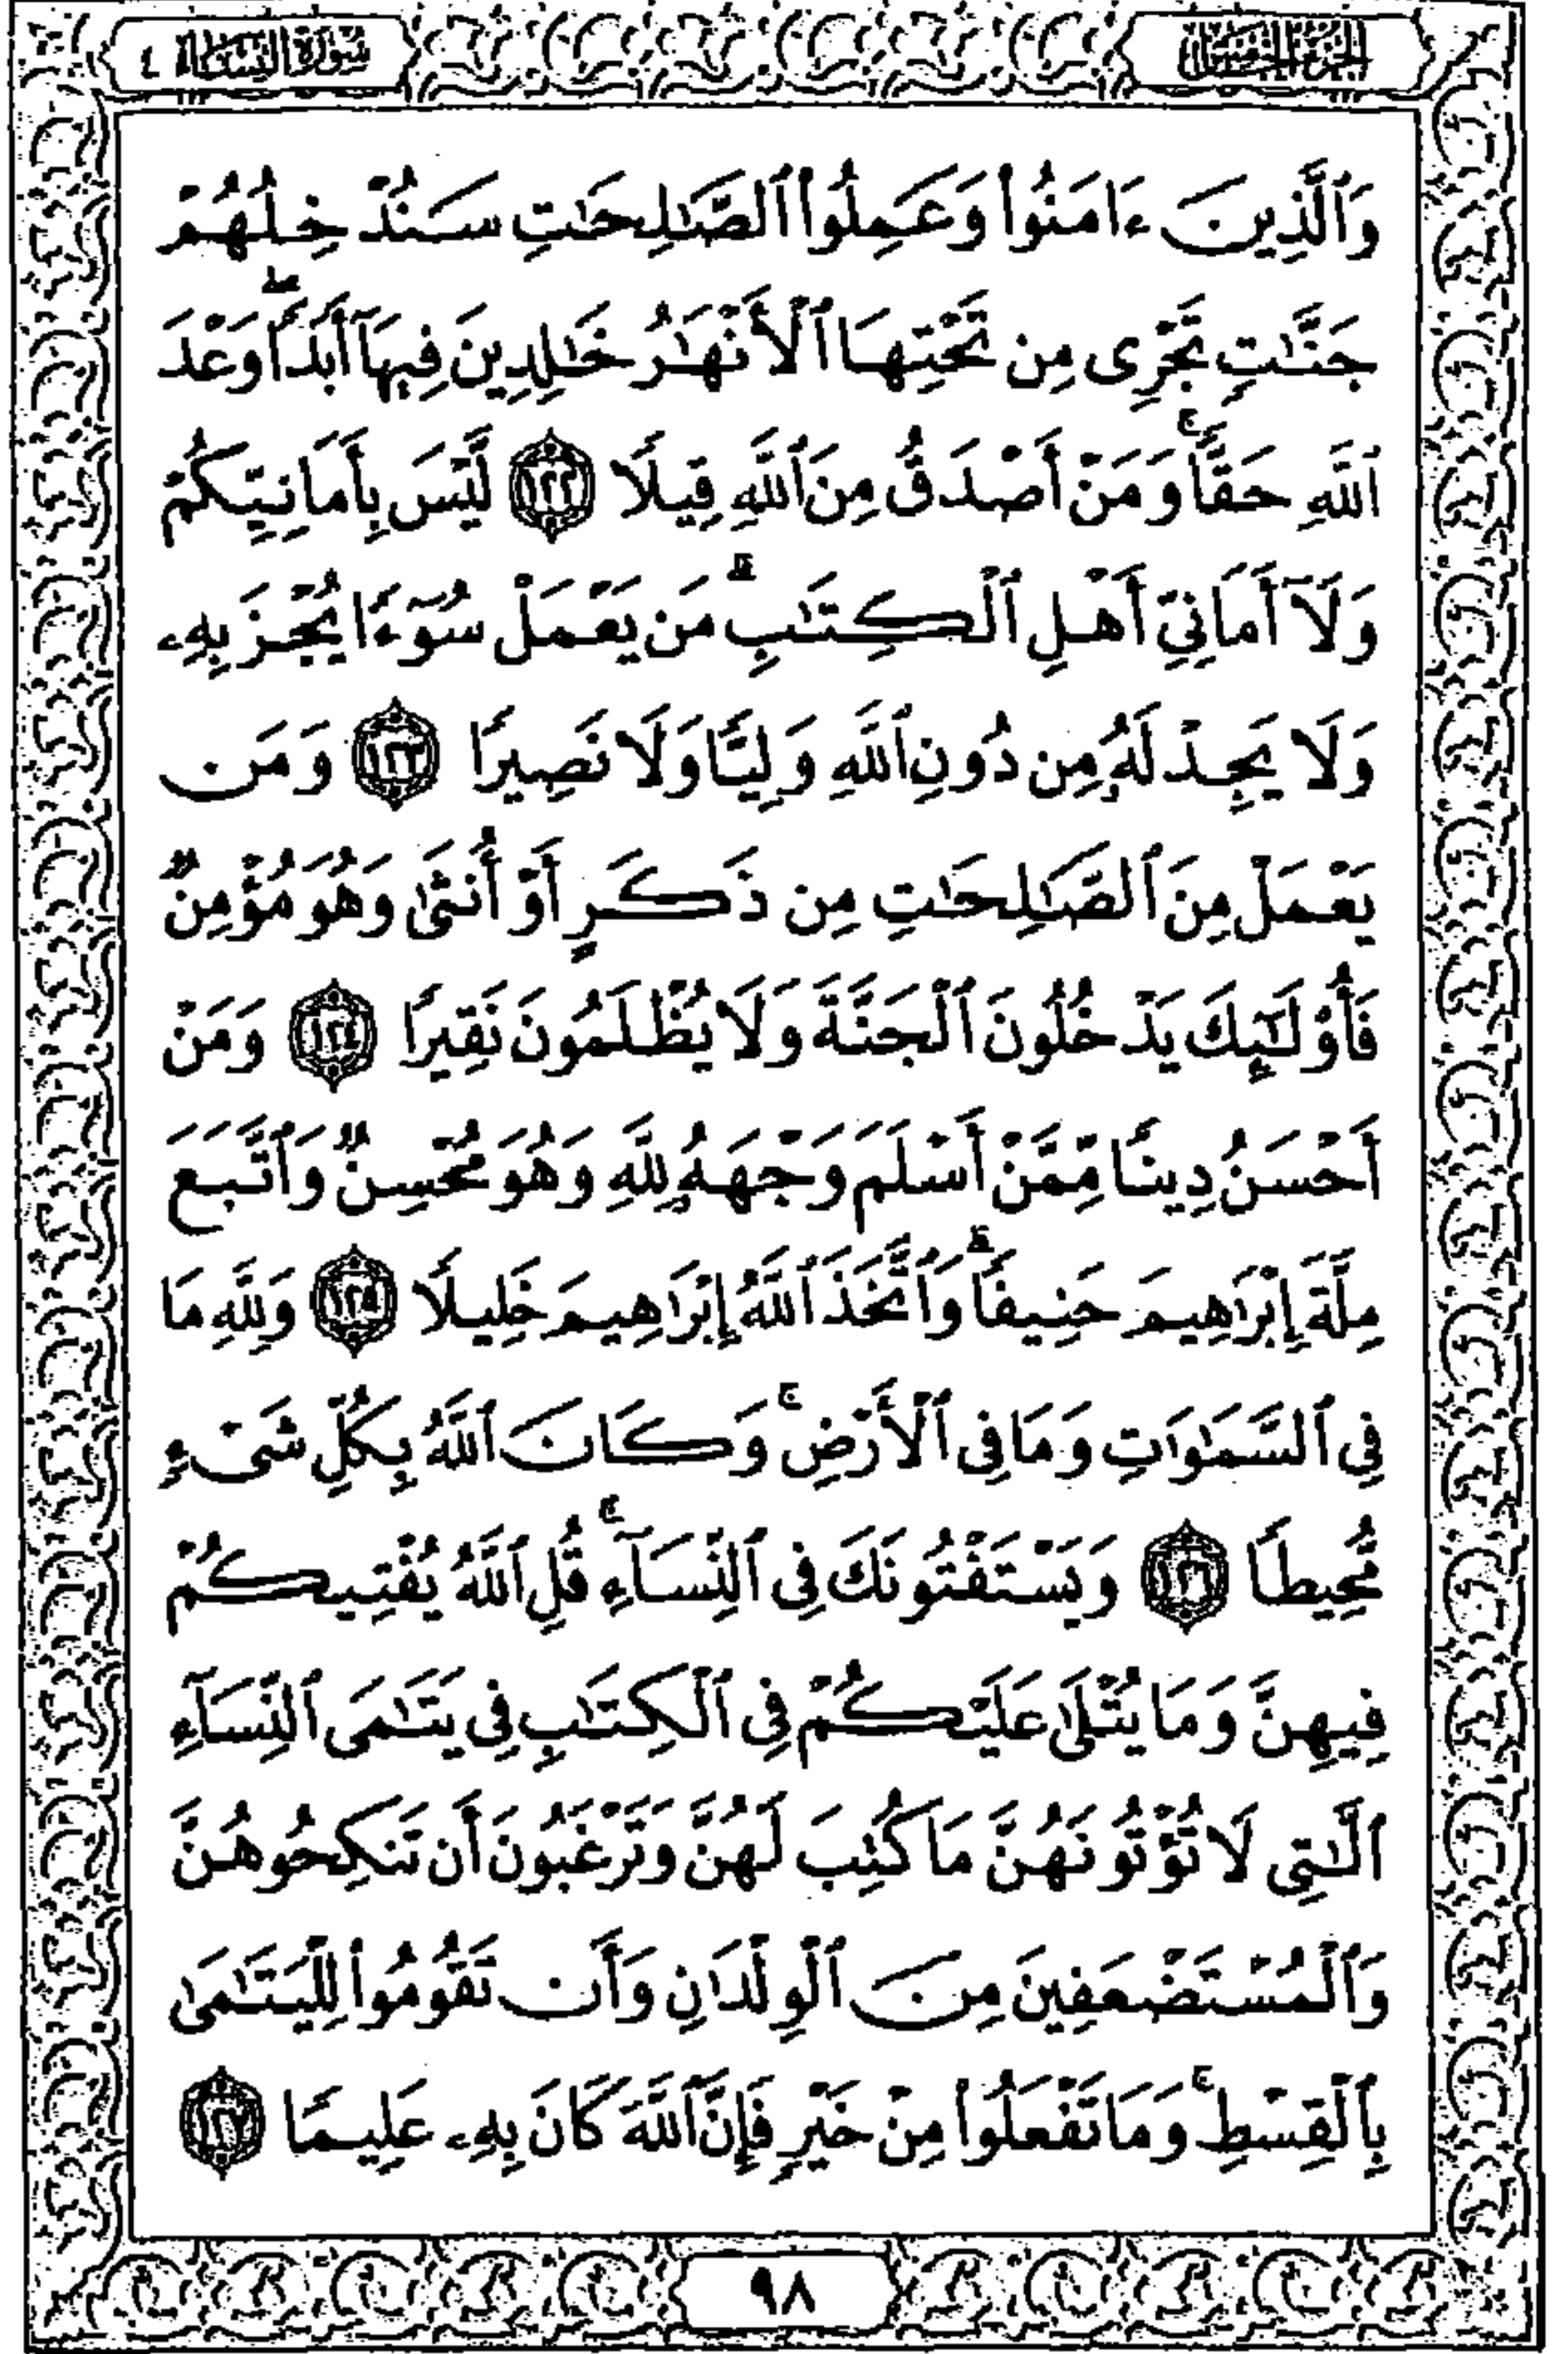 الجزء الخامس
سورة النساء ٤
وَٱلَّذِينَ ءَامَنُوا۟ وَعَمِلُوا۟ ٱلصَّـٰلِحَـٰتِ سَنُدْخِلُهُمْ
جَنَّـٰتٍ تَجْرِى مِن تَحْتِهَا ٱلْأَنْهَـٰرُ خَـٰلِدِينَ فِيهَآ أَبَدًا ۖ وَعْدَ
ٱللَّهِ حَقًّا ۚ وَمَنْ أَصْدَقُ مِنَ ٱللَّهِ قِيلًا ١٢٢ لَّيْسَ بِأَمَانِيِّكُمْ
وَلَآ أَمَانِىِّ أَهْلِ ٱلْكِتَـٰبِ ۗ مَن يَعْمَلْ سُوٓءًا يُجْزَ بِهِۦ
وَلَا يَجِدْ لَهُۥ مِن دُونِ ٱللَّهِ وَلِيًّا وَلَا نَصِيرًا ١٢٣ وَمَن
يَعْمَلْ مِنَ ٱلصَّـٰلِحَـٰتِ مِن ذَكَرٍ أَوْ أُنثَىٰ وَهُوَ مُؤْمِنٌ
فَأُو۟لَـٰٓئِكَ يَدْخُلُونَ ٱلْجَنَّةَ وَلَا يُظْلَمُونَ نَقِيرًا ١٢٤ وَمَنْ
أَحْسَنُ دِينًا مِّمَّنْ أَسْلَمَ وَجْهَهُۥ لِلَّهِ وَهُوَ مُحْسِنٌ وَٱتَّبَعَ
مِلَّةَ إِبْرَٰهِيمَ حَنِيفًا ۗ وَٱتَّخَذَ ٱللَّهُ إِبْرَٰهِيمَ خَلِيلًا ١٢٥ وَلِلَّهِ مَا
فِى ٱلسَّمَـٰوَٰتِ وَمَا فِى ٱلْأَرْضِ ۚ وَكَانَ ٱللَّهُ بِكُلِّ شَىْءٍ
مُّحِيطًا ١٢٦ وَيَسْتَفْتُونَكَ فِى ٱلنِّسَآءِ ۖ قُلِ ٱللَّهُ يُفْتِيكُمْ
فِيهِنَّ وَمَا يُتْلَىٰ عَلَيْكُمْ فِى ٱلْكِتَـٰبِ فِى يَتَـٰمَى ٱلنِّسَآءِ
ٱلَّـٰتِى لَا تُؤْتُونَهُنَّ مَا كُتِبَ لَهُنَّ وَتَرْغَبُونَ أَن تَنكِحُوهُنَّ
وَٱلْمُسْتَضْعَفِينَ مِنَ ٱلْوِلْدَٰنِ وَأَن تَقُومُوا۟ لِلْيَتَـٰمَىٰ
بِٱلْقِسْطِ ۚ وَمَا تَفْعَلُوا۟ مِنْ خَيْرٍ فَإِنَّ ٱللَّهَ كَانَ بِهِۦ عَلِيمًا ١٢٧
٩٨